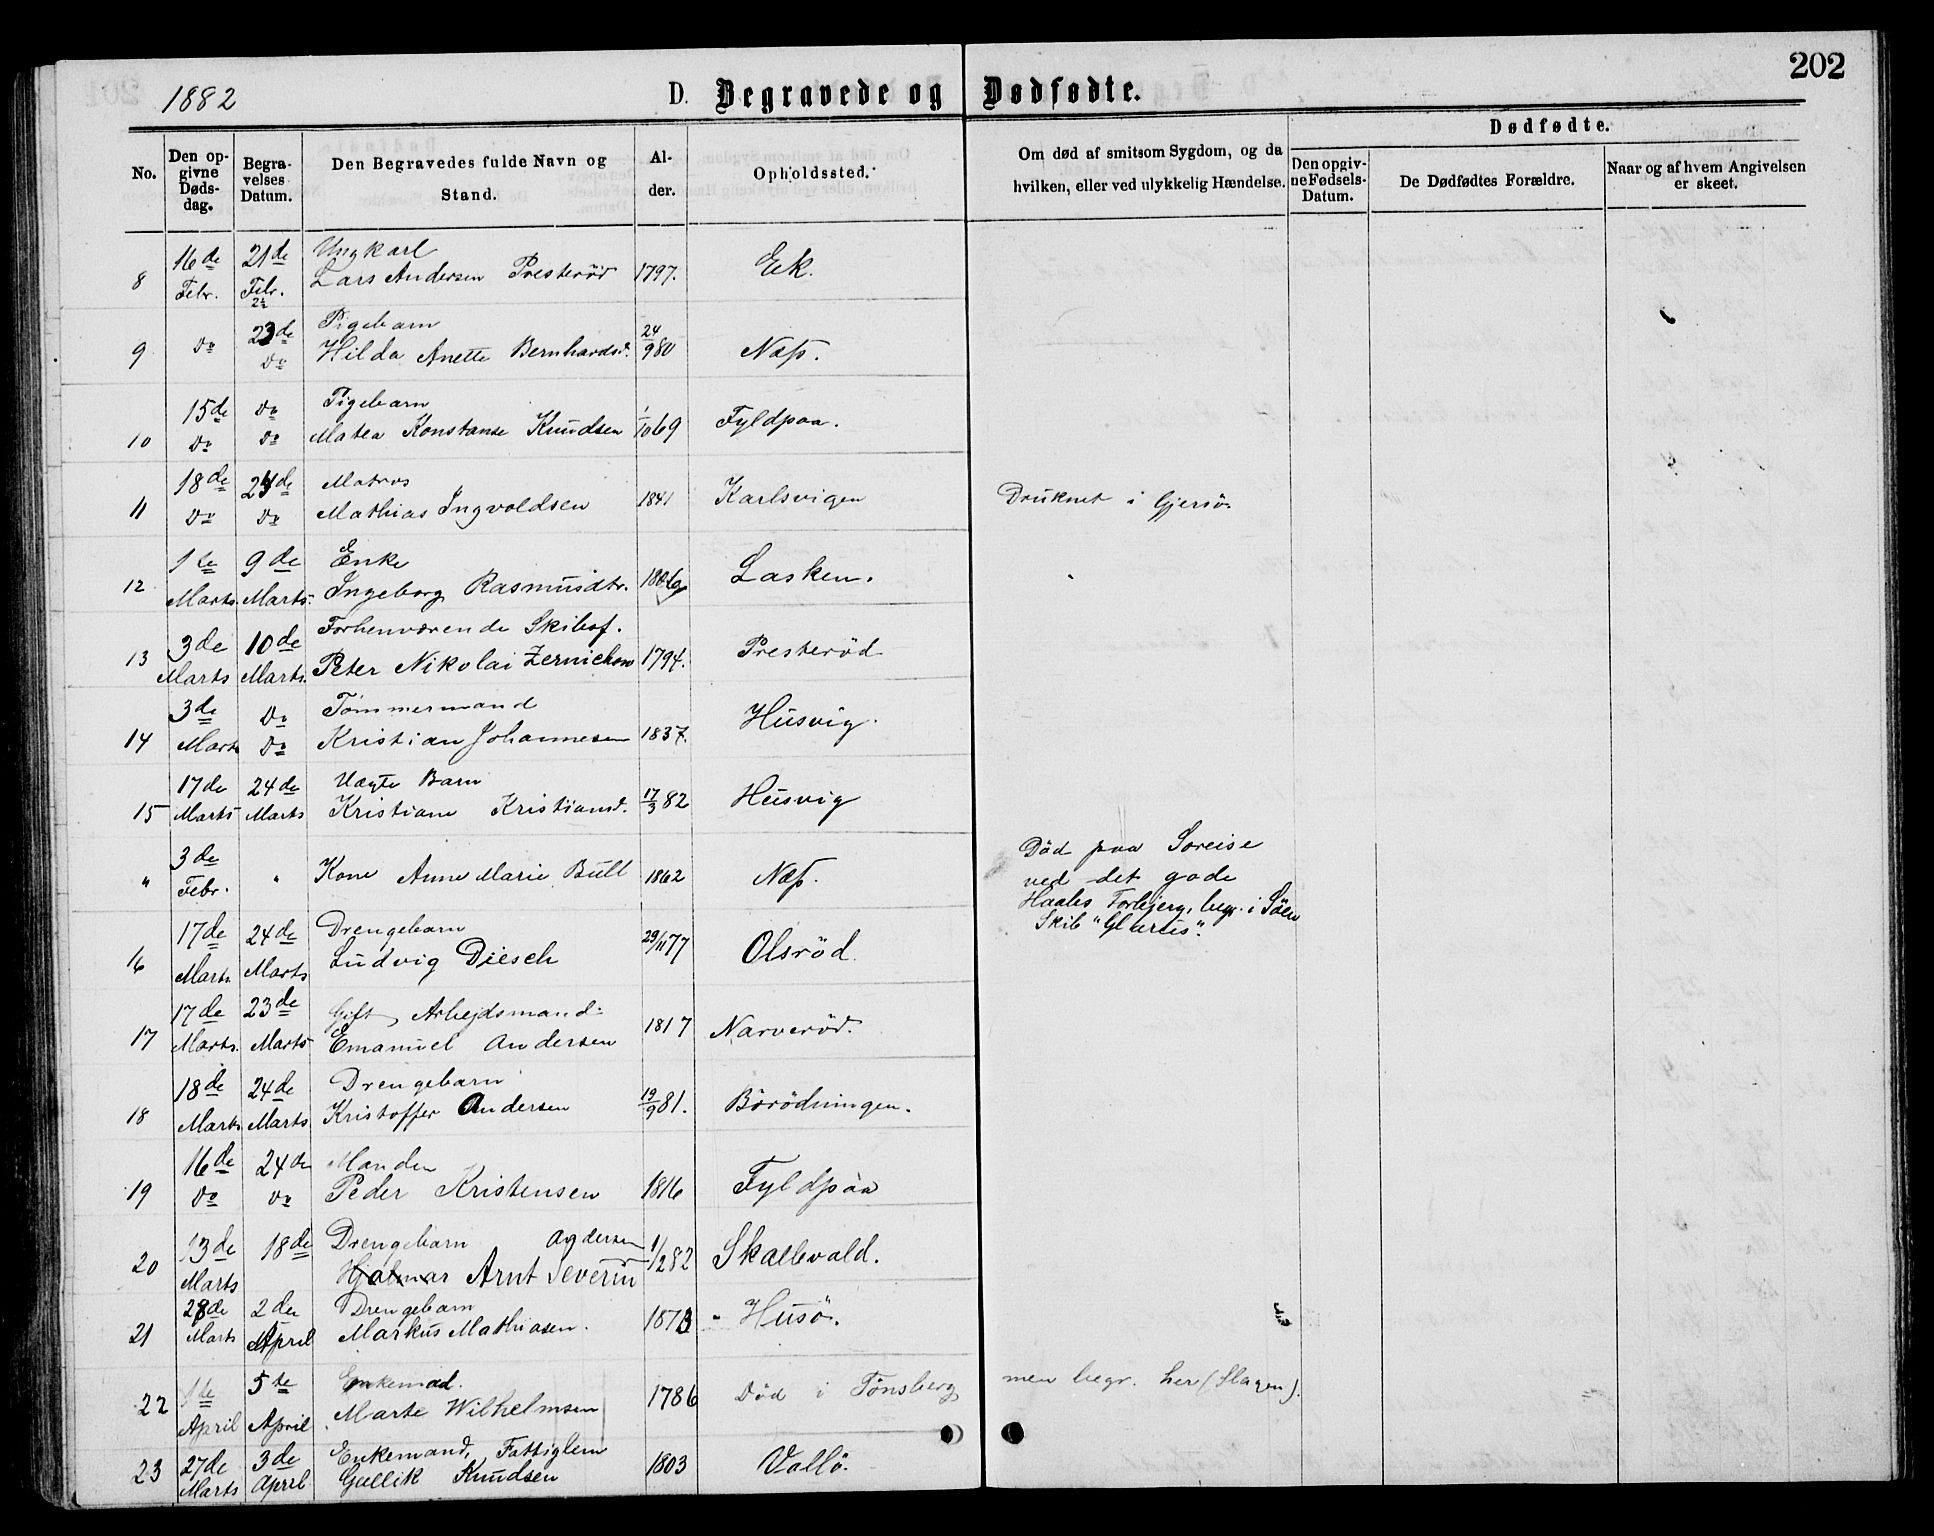 202
1882
D. Begravede og Dødfødte.
No.
Den op-
givne
Døds-
dag.
Begra-
velses
Datum.
Den Begravedes fulde Navn og
Stand.
Al-
der.
Opholdssted.
Om død af smitsom Sygdom, og da
hvilken, eller ved ulykkelig Hændelse.
Dødfødte.
Den opgiv-
ne Fødsels-
Datum.
De Dødfødtes Forældre.
Naar og af hvem Angivelsen
er skeet.
16de 21de Ungkarl
8 Febr. Febr. Lars Andersen Presterød 1797. Ek.
Do 23de Pigebarn
9 Do Hilda Anette Bernhardsd. 24/9 80 Næs.
15de Do Pigebarn
10 Do Do Matea Konstanse Knudsen 1/10 69 Fyldpaa.
18de 24de Matros
11 Do Do Mathias Ingvoldsen 1841 Karlsvigen Druknet i Gjersö
1te 9de Enke
12 Marts. Marts. Ingeborg Rasmusdtr. Lasken.
3de 10de Forhenværende Skibsf.
13 Marts Marts. Peter Nikolai Zernichow 1794. Presterød
3de Do Tømmermand
14 Marts Do Kristian Johannesen 1837. Husvig.
17de 24de Uægte Barn
15 Marts Marts Kristiane Kristiansd. 17/3 82 Husvig
3de
" Febr. " Kone Anne Marie Bull 1862 Næs.
Död paa Söreise
ved det gode
Haabs Forbjerg, begr. i Söen
Skib
17de 24de Drengebarn
16 Marts. Marts Ludvig Diesch 29/11 77 Olsröd.
17de 23de Gift Arbejdsmand
17 Marts. Marts Emanuel Andersen 1817 Narveröd.
18de 24de Drengebarn
18 Marts Marts Kristoffer Andersen 19/9 81. Börödningen.
16de 24de Manden
19 Do Do Peder Kristensen 1816 Fyldpaa
13de 18de Drengebarn Andersen
20 Marts Hjalmar Arnt Severin 1/2 82 Skallevald.
28de 2den Drengebarn
21 Marts April Markus Mathiasen. 1873 Husö.
1te 5te Enkemad.
22 April April Marte Wilhelmsen 1786 Död i Tönsberg men begr. her (Slagen).
27de 3de Enkemand, Fattiglem
23 Marts April Gullik Knudsen 1803 Vallö.